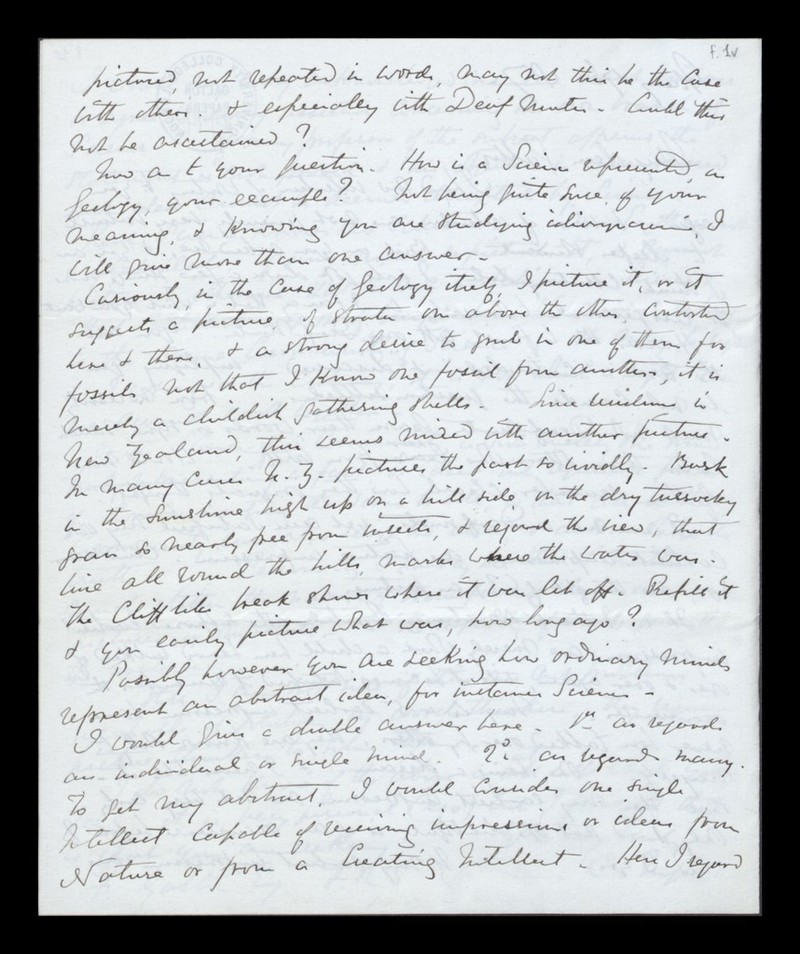 f. 1v
pictured, not repeated in words, may not this be the case
with others. & especially with Deaf Mutes. Could this
not be ascertained?
Now as to your question. How is a Science represented, as
Geology, your example? Not being quite sure of your
meaning, & knowing you are studying idiosyncrasies, I
will give more than one answer.
Curiously, in the case of Geology itself, I picture it, or it
suggests a picture, of strata one above the other, contorted
here & there, & a strong desire to grub in one of them for
fossils not that I know one fossil from another, it is
merely a childish gathering shells. Since in
New Zealand, this seems mixed with another picture.
In many cases N. Z. pictures the past so vividly. Bask
in the sunshine high up on a hill side on the dry tussocky
grass so nearly free from insects, & regard the view, that
line all round the hills, marks where the water was.
The Cliff like break shows where it was let off. Refill it
& you easily picture what was, how long ago?
Possibly however you are seeking how ordinary minds
represent an abstract idea, for instance Science.
I would give a double answer here. 1st as regards
an individual or single mind. 2º as regards many.
To get my abstract, I would consider one single
Intellect capable of receiving impressions or ideas from
Nature or from a Creating Intellect. Here I regard